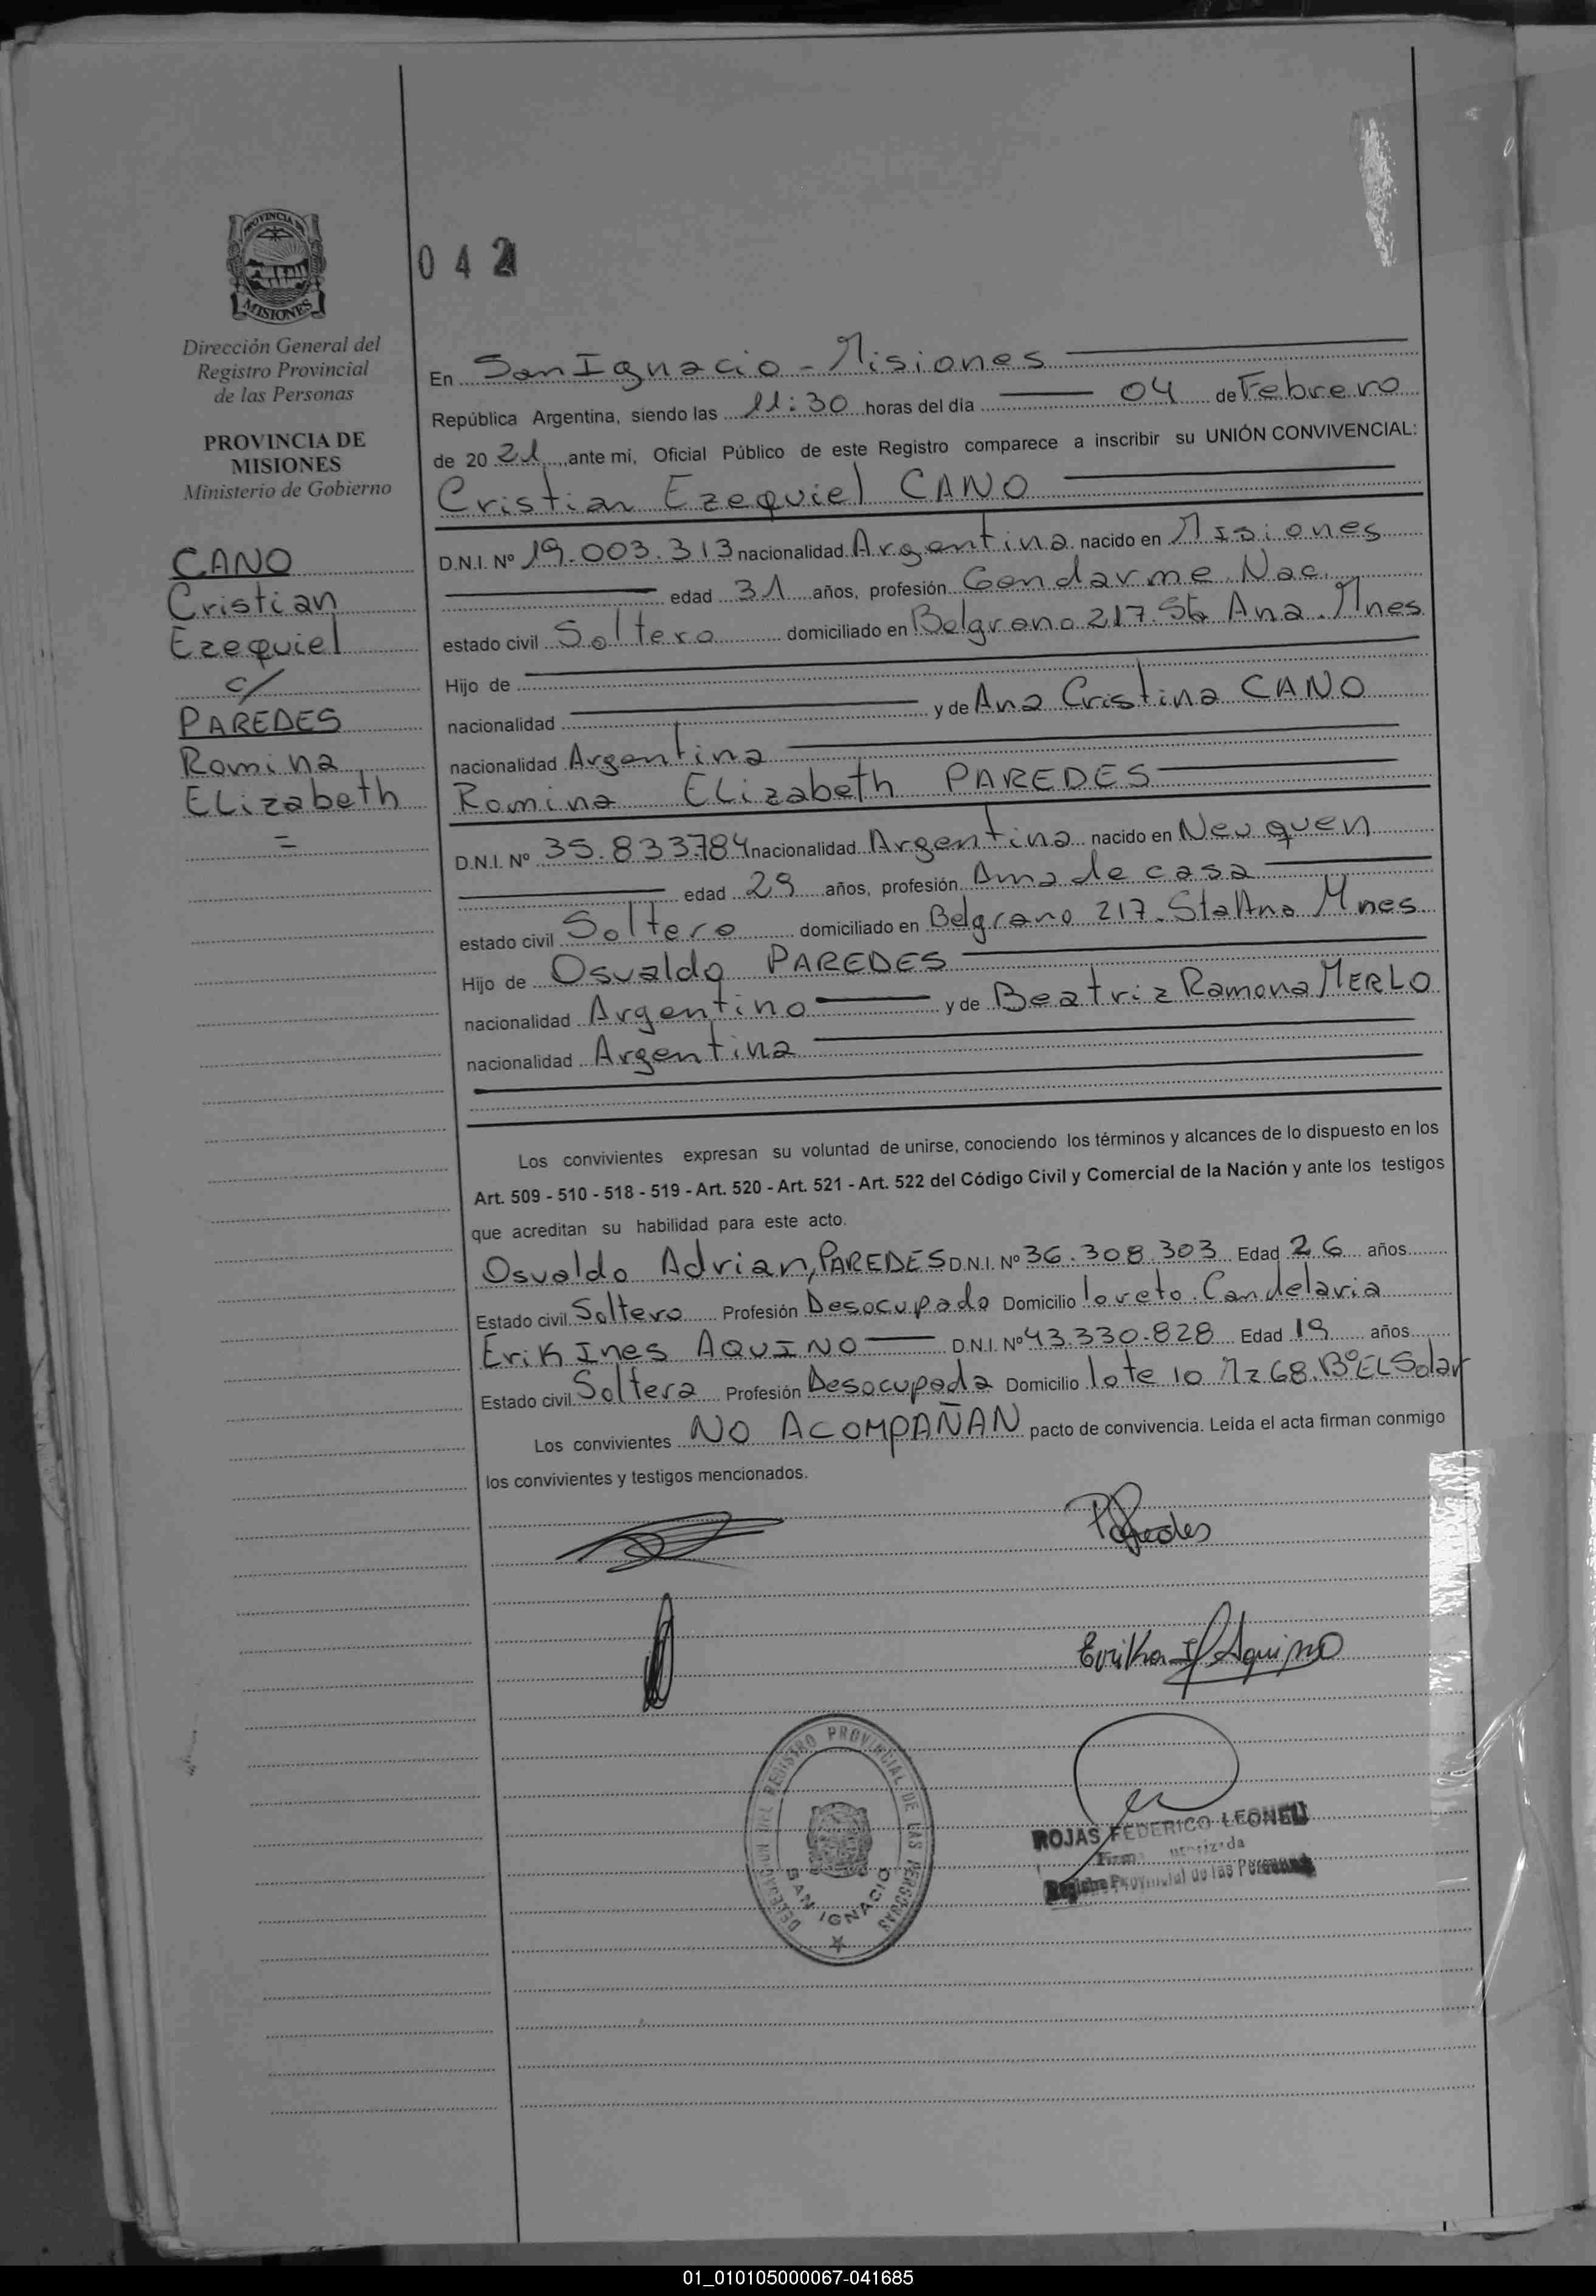 PROVINCIA DE
MISIONES
Dirección General del
Registro Provincial
de las Personas
PROVINCIA DE
MISIONES
Ministerio de Gobierno
CANO
Cristian
Ezequiel
c/
PAREDES
Romina
ELizabeth
=
04
En San Ignacio - Misiones
República Argentina, siendo las 11:30 horas del día 04 de Febrero
de 20 21 ante mi, Oficial Público de este Registro comparece a inscribir su UNIÓN CONVIVENCIAL:
Cristian Ezequiel CANO
D.N.I. Nº 19.003.313 nacionalidad Argentina nacido en Misiones
edad 31 años, profesión Gendarme Nac.
estado civil Soltero domiciliado en Belgrano 217. Sta Ana. Mnes
Hijo de
nacionalidad y de Ana Cristina CANO
nacionalidad Argentina
Romina ELizabeth PAREDES
D.N.I. Nº 35.833784 nacionalidad Argentina nacido en Neuquen
edad 29 años, profesión Ama de casa
estado civil Soltero domiciliado en Belgrano 217. Sta Ana Mnes.
Hijo de Osvaldo PAREDES
nacionalidad Argentino y de Beatriz Ramona MERLO
nacionalidad Argentina
Los convivientes expresan su voluntad de unirse, conociendo los términos y alcances de lo dispuesto en los
Art. 509 - 510 - 518 - 519 - Art. 520 - Art. 521 - Art. 522 del Código Civil y Comercial de la Nación y ante los testigos
que acreditan su habilidad para este acto.
Osvaldo Adrian, PAREDES D.N.I. Nº 36.308.303 Edad 26 años
Estado civil Soltero Profesión Desocupado Domicilio loreto. Candelaria
Erik Ines AQUINO D.N.I. Nº 43.330.828 Edad 19 años
Estado civil Soltera Profesión Desocupada Domicilio lote 10 Mz 68. Bº EL Solar
Los convivientes NO ACOMPAÑAN pacto de convivencia. Leída el acta firman conmigo
los convivientes y testigos mencionados.
Paredes
Erika I Aquino
DELEGACION DEL REGISTRO PROVINCIAL DE LAS PERSONAS
SAN IGNACIO
ROJAS FEDERICO LEONEL
Registro Provincial de las Personas
01_010105000067-041685